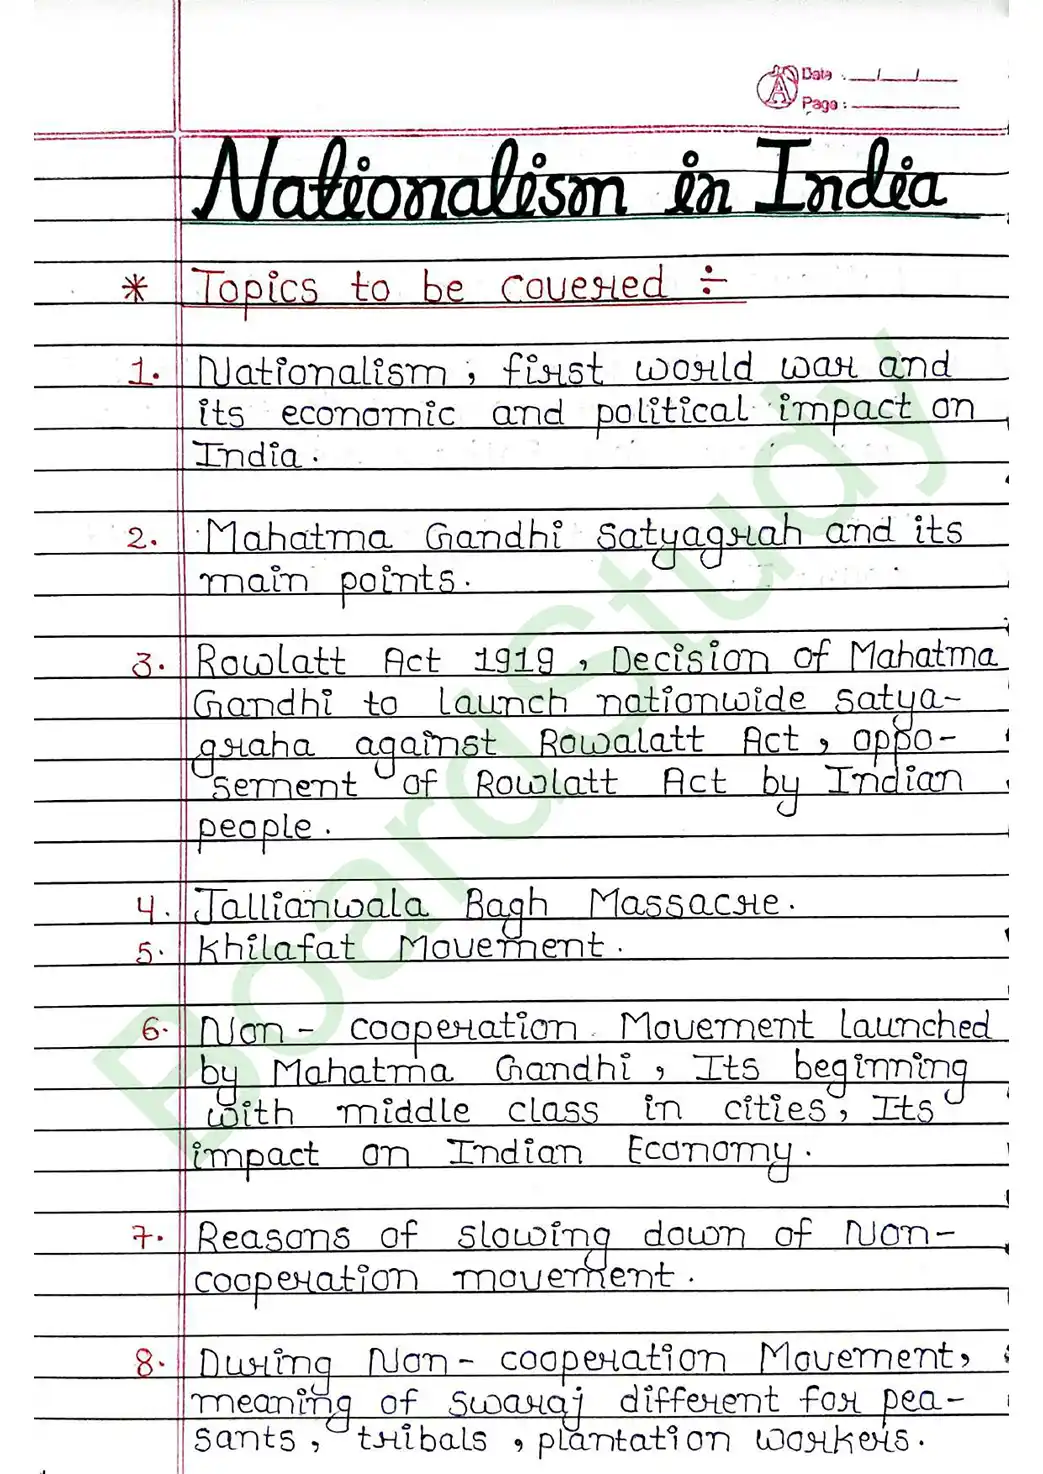 Date : __/__/__
Page :
Nationalism in India
* Topics to be covered ÷
1. Nationalism, first world war and
its economic and political impact on
India.
2. Mahatma Gandhi Satyagrah and its
main points.
3. Rowlatt Act 1919, Decision of Mahatma
Gandhi to launch nationwide satya-
graha against Rowalatt Act, oppo-
sement of Rowlatt Act by Indian
people.
4. Jallianwala Bagh Massacre.
5. Khilafat Movement.
6. Non - cooperation Movement launched
by Mahatma Gandhi, Its beginning
with middle class in cities, Its
impact on Indian Economy.
7. Reasons of slowing down of Non-
cooperation movement.
8. During Non - cooperation Movement,
meaning of swaraj different for pea-
sants, tribals, plantation workers.
BoardStudy